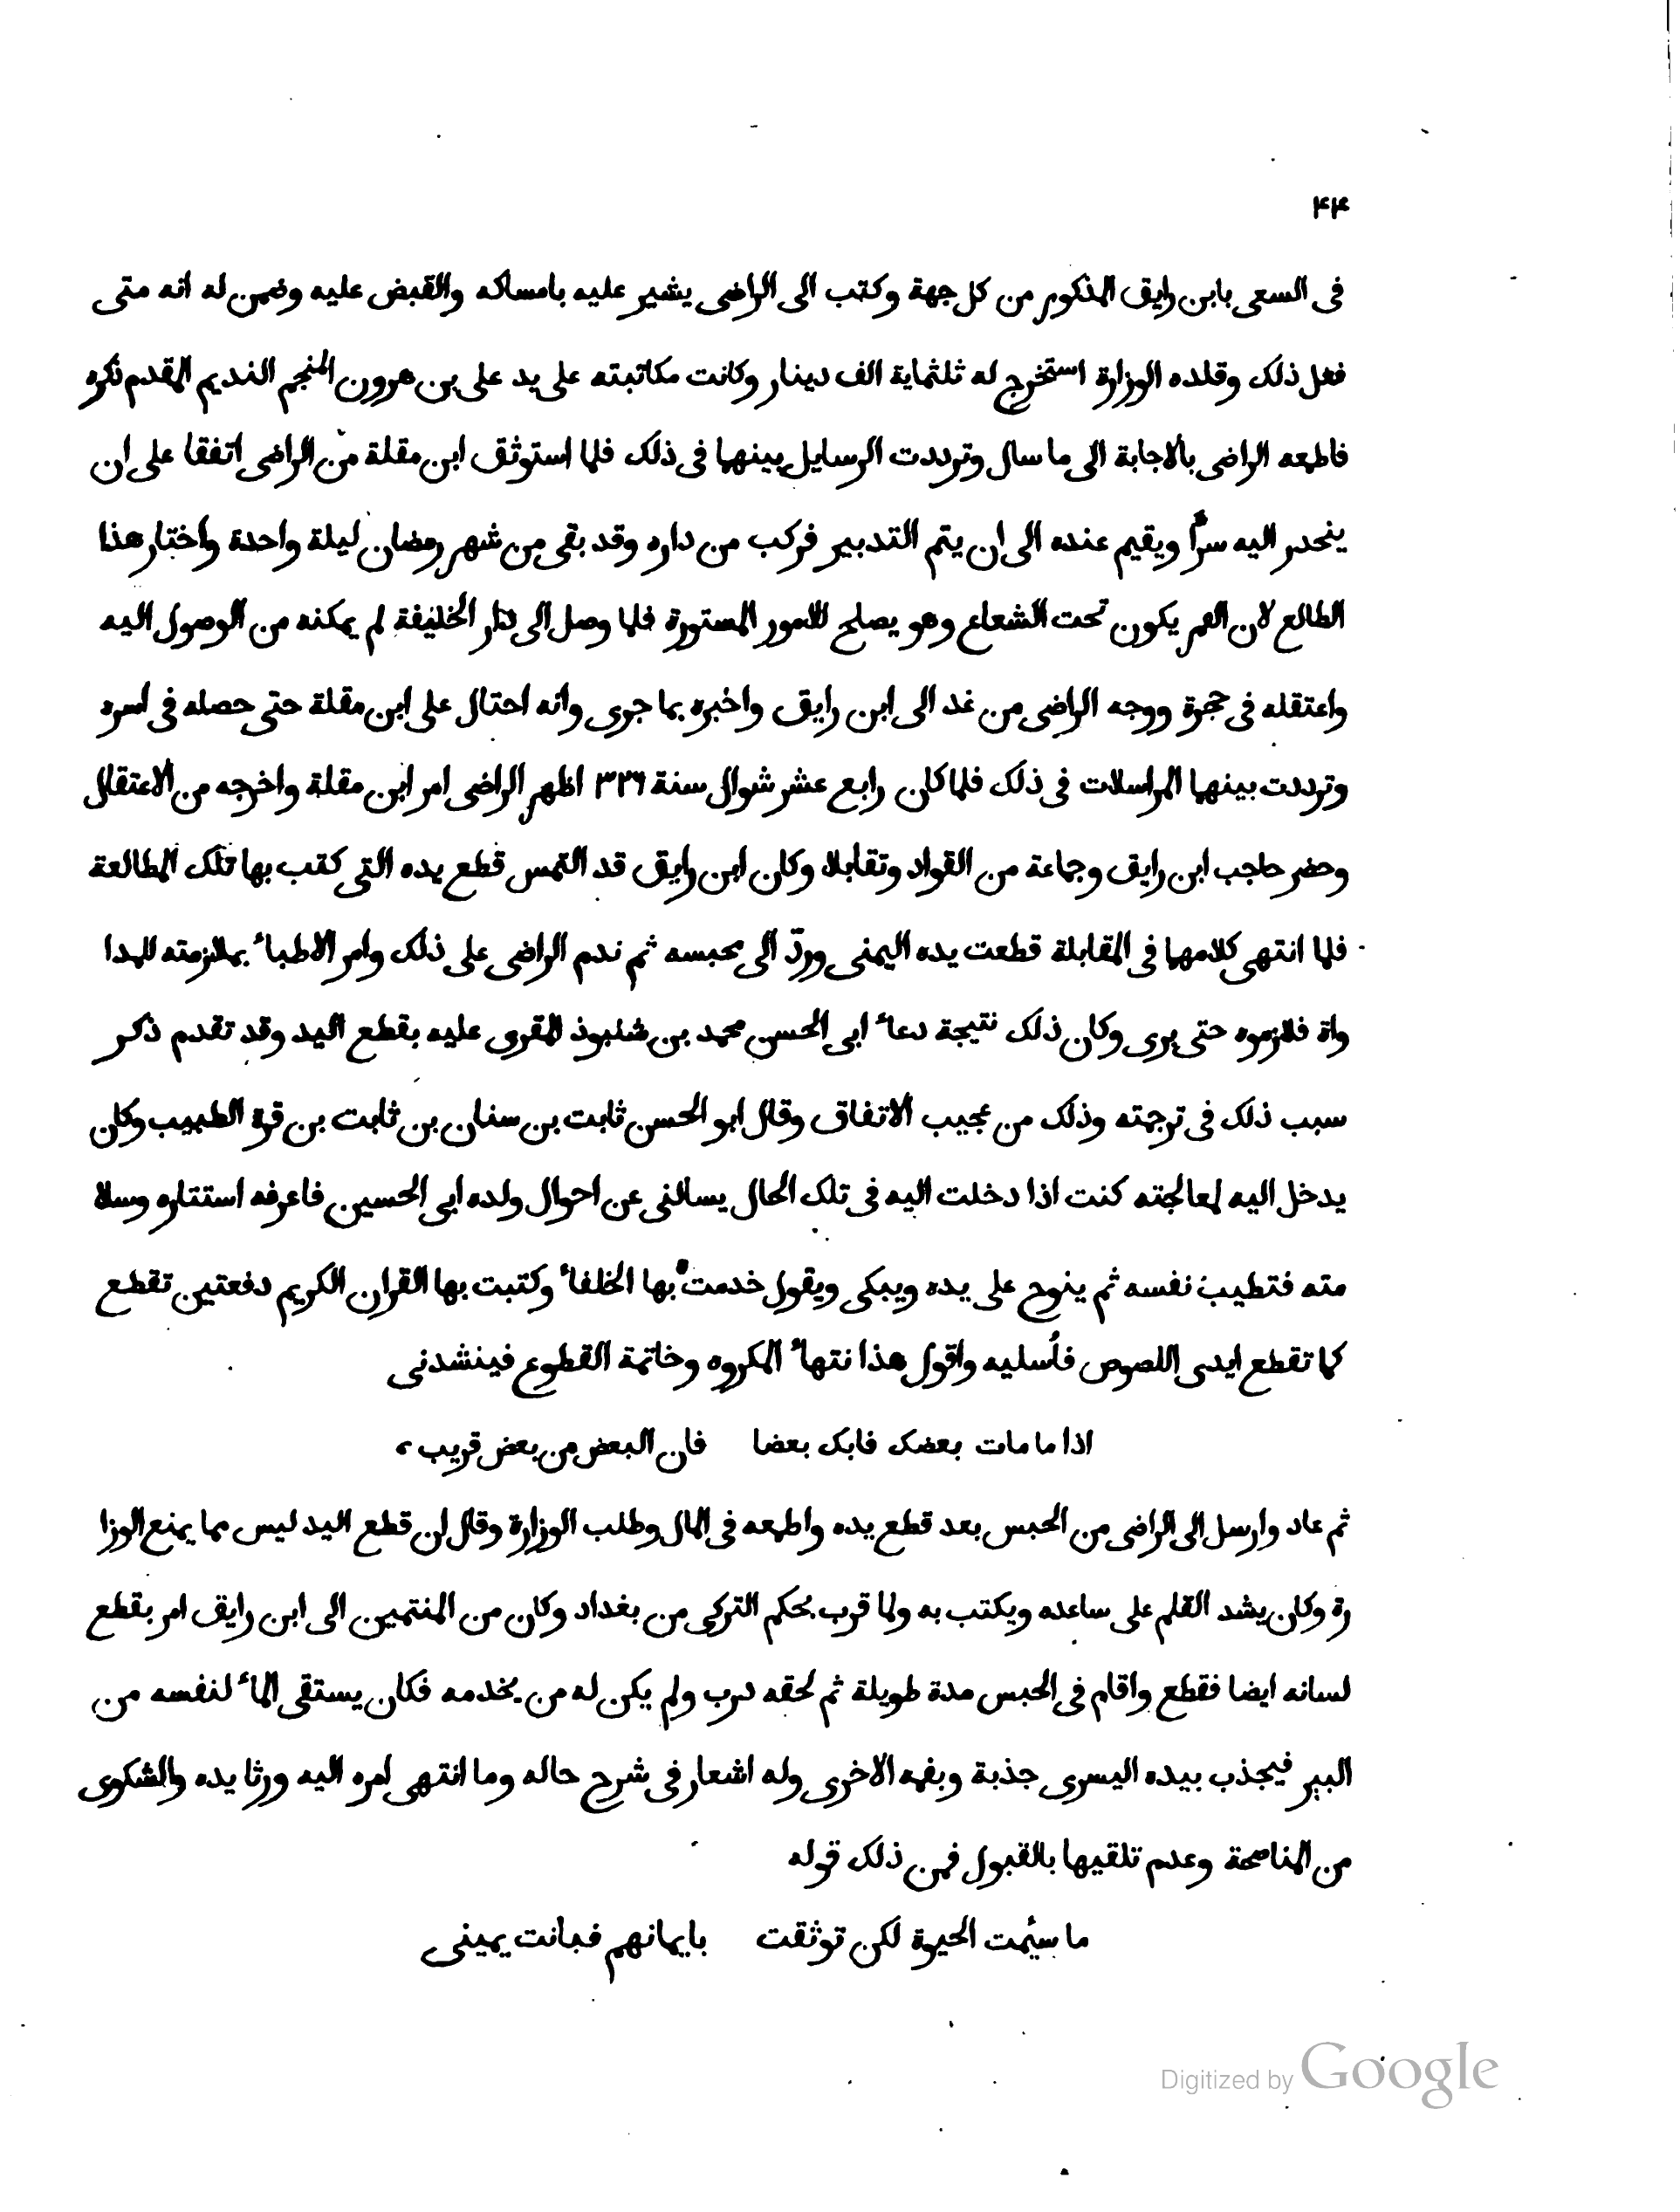 ۴۴
فى السعى بابن رايق المذكور من كل جهة وكتب الى الراضى يشير عليه بامساكه والقبض عليه وضمن له انه متى
فعل ذلك وقلده الوزارة استخرج له ثلثماية الف دينار وكانت مكاتبته على يد على بن هرون المنجم النديم المقدم ذكره
فاطمعه الراضى بالاجابة الى ما سال وترددت الرسايل بينهما فى ذلك فلما استوثق ابن مقلة من الراضى اتفقا على ان
ينحدر اليه سرًّا ويقيم عنده الى ان يتم التدبير فركب من داره وقد بقى من شهر رمضان ليلة واحدة واختار هذا
الطالع لان القمر يكون تحت الشعاع وهو يصلح للامور المستورة فلما وصل الى دار الخليفة لم يمكنه من الوصول اليه
واعتقله فى حجرة ووجه الراضى من غد الى ابن رايق واخبره بما جرى وانه احتال على ابن مقلة حتى حصله فى اسره
وترددت بينهما المراسلات فى ذلك فلما كان رابع عشر شوال سنة ۳۲۶ اظهر الراضى امر ابن مقلة واخرجه من الاعتقال
وحضر حاجب ابن رايق وجماعة من القواد وتقابلا وكان ابن رايق قد التمس قطع يده التى كتب بها تلك المطالعة
فلما انتهى كلامهما فى المقابلة قطعت يده اليمنى وردّ الى محبسه ثم ندم الراضى على ذلك وامر الاطباء بملازمته للمدا
واة فلازموه حتى برى وكان ذلك نتيجة دعاء ابى الحسن محمد بن شنبوذ المقرى عليه بقطع اليد وقد تقدم ذكر
سبب ذلك فى ترجمته وذلك من عجيب الاتفاق وقال ابو الحسن ثابت بن سنان بن ثابت بن قرة الطبيب وكان
يدخل اليه لمعالجته كنت اذا دخلت اليه فى تلك الحال يسالنى عن احوال ولده ابى الحسين فاعرفه استتاره وسلا
مته فتطيب نفسه ثم ينوح على يده ويبكى ويقول خدمتُ بها الخلفاء وكتبت بها القران الكريم دفعتين تقطع
كما تقطع ايدى اللصوص فأسليه واقول هذا نتهاء المكروه وخاتمة القطوع فينشدنى
اذا ما مات بعضك فابك بعضا فان البعض من بعض قريب،
ثم عاد وارسل الى الراضى من الحبس بعد قطع يده واطمعه فى المال وطلب الوزارة وقال ان قطع اليد ليس مما يمنع الوزا
رة وكان يشد القلم على ساعده ويكتب به ولما قرب بحكم التركى من بغداد وكان من المنتمين الى ابن رايق امر بقطع
لسانه ايضا فقطع واقام فى الحبس مدة طويلة ثم لحقه درب ولم يكن له من يخدمه فكان يستقى الماء لنفسه من
البير فيجذب بيده اليسرى جذبة وبفمه الاخرى وله اشعار فى شرح حاله وما انتهى امره اليه ورثا يده والشكوى
من المناصحة وعدم تلقيها بالقبول فمن ذلك قوله
ما سئمت الحيوة لكن توثقت بايمانهم فبانت يمينى
Digitized by Google